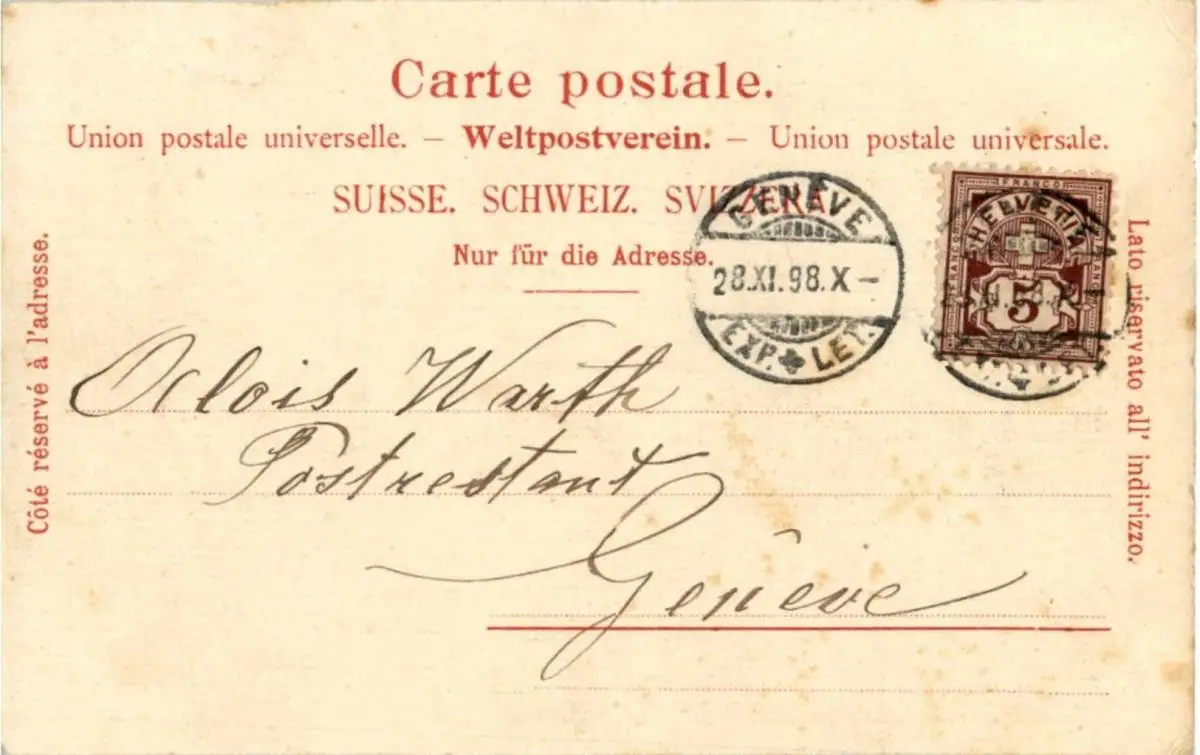 Carte postale.
Union postale universelle. – Weltpostverein. – Union postale universale.
SUISSE. SCHWEIZ. SVIZZERA
Nur für die Adresse.
GENÈVE
28.XI.98.X –
EXP. LET.
FRANCO
FRANCO
FRANCO
HELVETIA
5
Côté réservé à l'adresse.
Lato riservato all' indirizzo.
Alois Warth
Postrestant
Genève